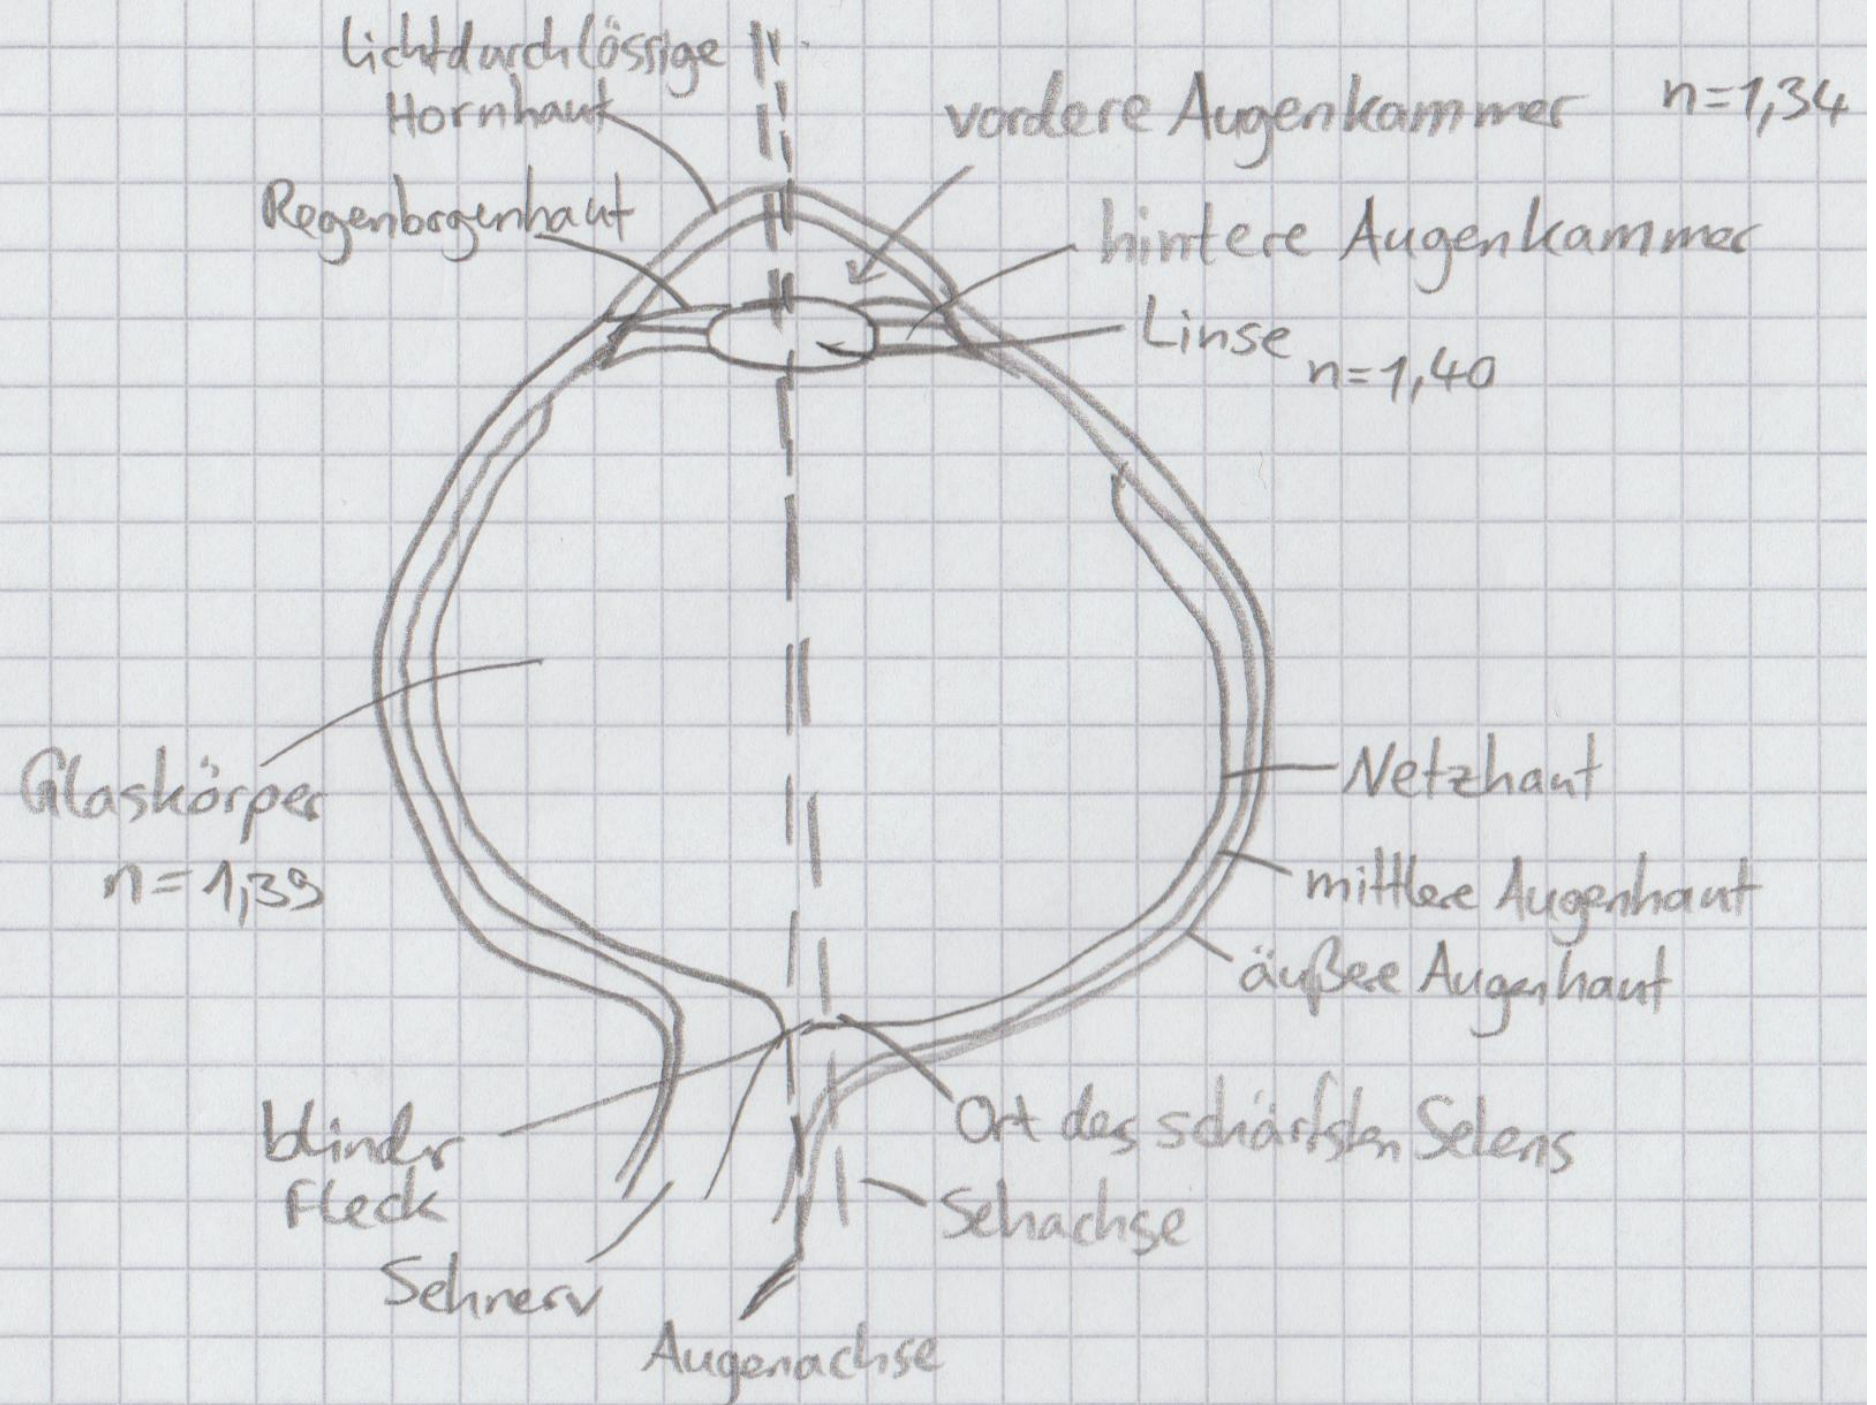 lichtdurchlössige
Hornhaut
vordere Augenkammer n=1,34
Regenbogenhaut
hintere Augenkammer
Linse
n=1,40
Glaskörper
n=1,39
Netzhaut
mittlere Augenhaut
äußere Augenhaut
blinder
Fleck
Ort des schärfsten Sehens
Sehachse
Sehnerv
Augenachse